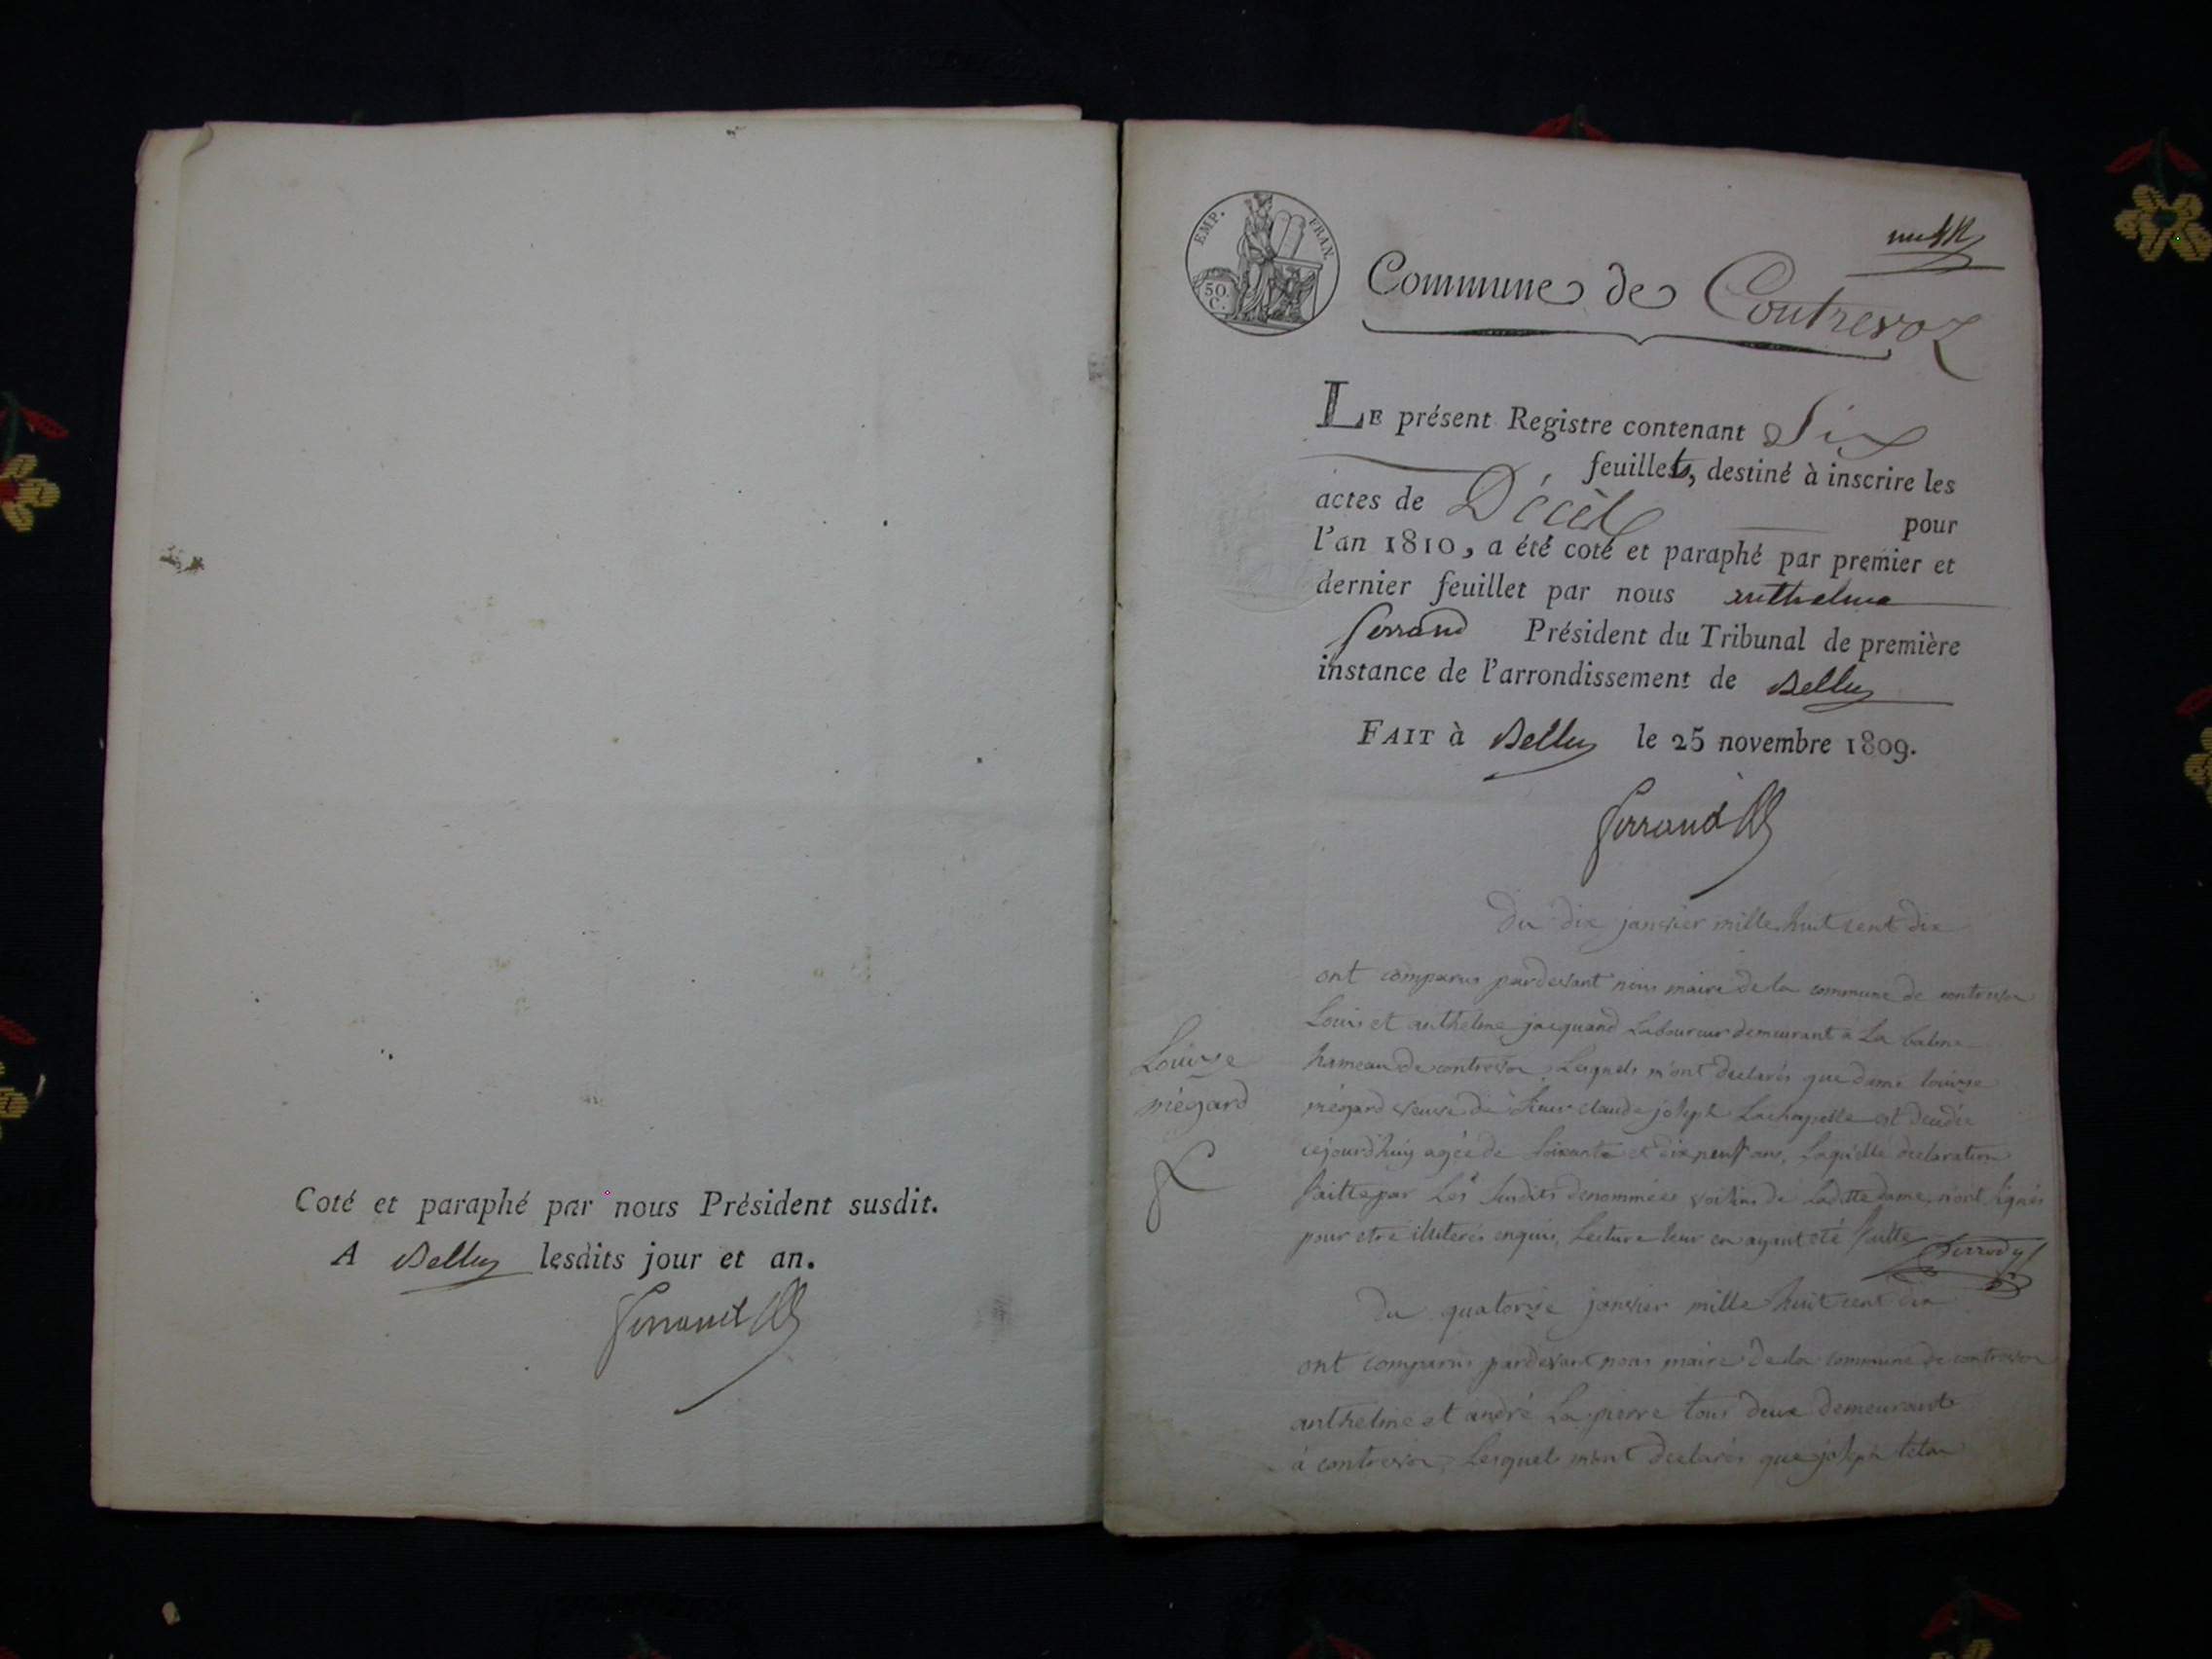 Coté et paraphé par nous Président susdit.
A Belley lesdits jour et an.
Ferrand
EMP. FRAN.
50 C.
Commune de Contrevoz
LE présent Registre contenant Six
feuillets, destiné à inscrire les
actes de Décès pour
l'an 1810, a été coté et paraphé par premier et
dernier feuillet par nous anthelme
ferrand Président du Tribunal de première
instance de l'arrondissement de Belley
FAIT à Belley le 25 novembre 1809.
Ferrand
Du dix janvier mille huit cent dix
ont comparus pardevant nous maire de la commune de contrevoz
Louis et anthelme jacquand Laboureur demeurant à La
Louise
mégard
hameau de contrevoz, Lesquels m'ont declarés que dame louise
mégard veuve de Sieur claude joseph Lachapelle est decedée
cejourd'huy agée de Soixante et dix neuf ans, Laquelle declaration
faitte par Les Susdits denommées voisins de Laditte dame, n'ont signés
pour etre illiterés enquis, Lecture leur en ayant eté faitte
Du quatorze janvier mille huit cent dix
ont comparus pardevant nous maire de la commune de contrevoz
anthelme et andré Lapierre tous deux demeurants
à contrevoz, Lesquels m'ont declarés que joseph